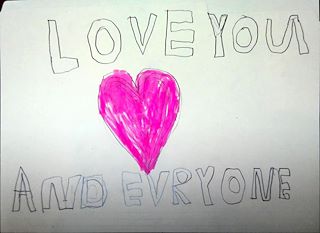 LOVE YOU
AND EVRYONE